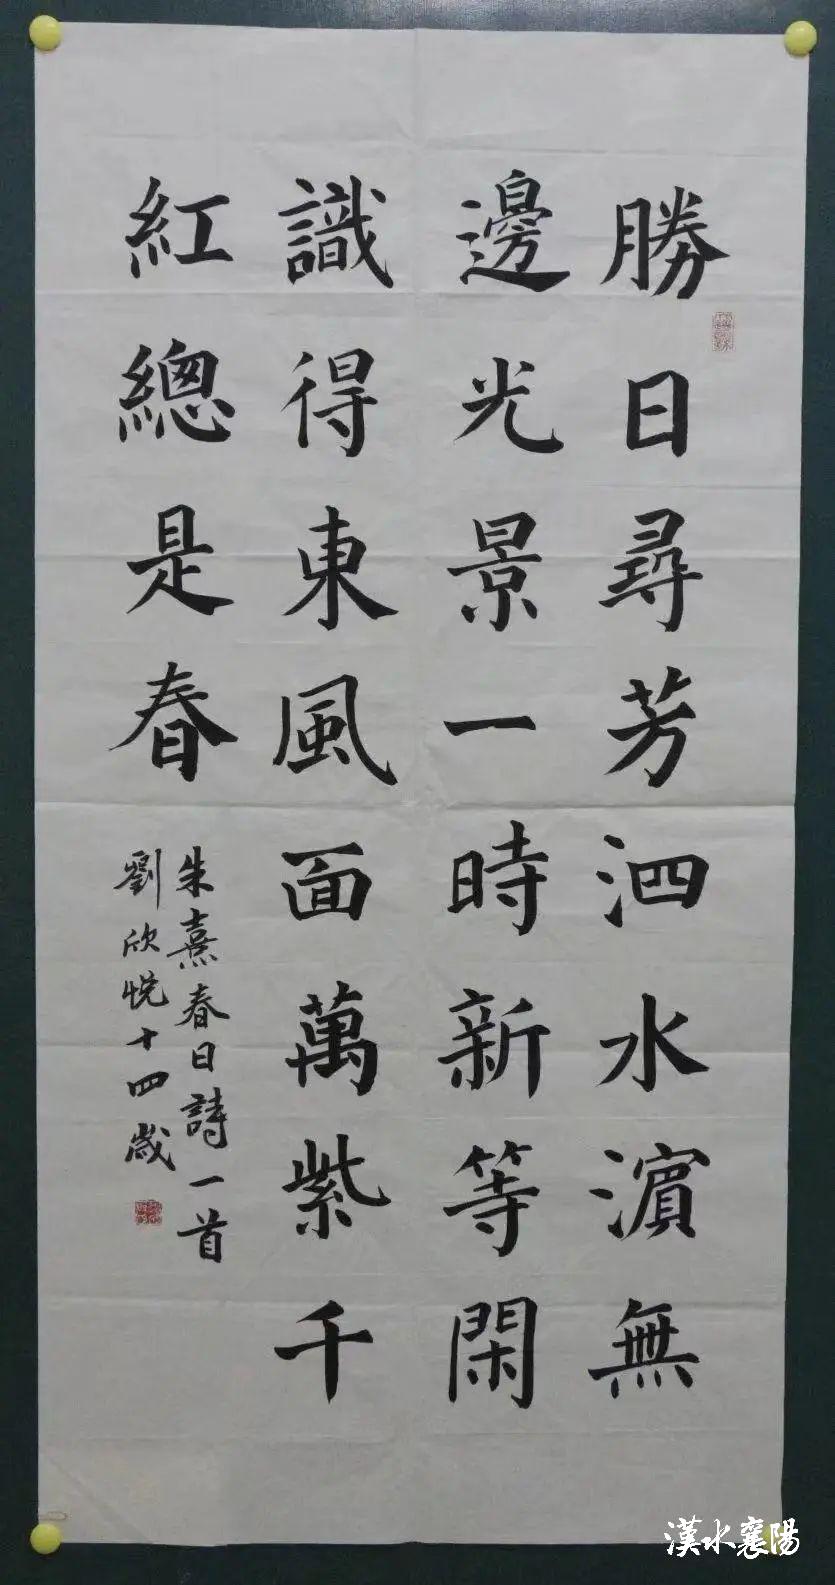 勝日尋芳泗水濱無
邊光景一時新等閑
識得東風面萬紫千
紅總是春
朱熹春日詩一首
劉欣悅十四歲
漢水襄陽